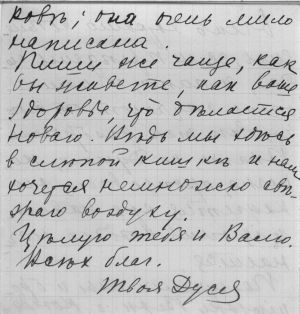 ковъ; она очень мило
написана.
Пиши же чаще, как
вы живете, как ваше
здоровье, что дѣлается
новаго. Вѣдь мы здѣсь
в слѣпой кишкѣ и нам
хочется немножко свѣ-
жаго воздуху.
Цѣлую тебя и Васю.
Всѣх благ.
Твоя Дуся